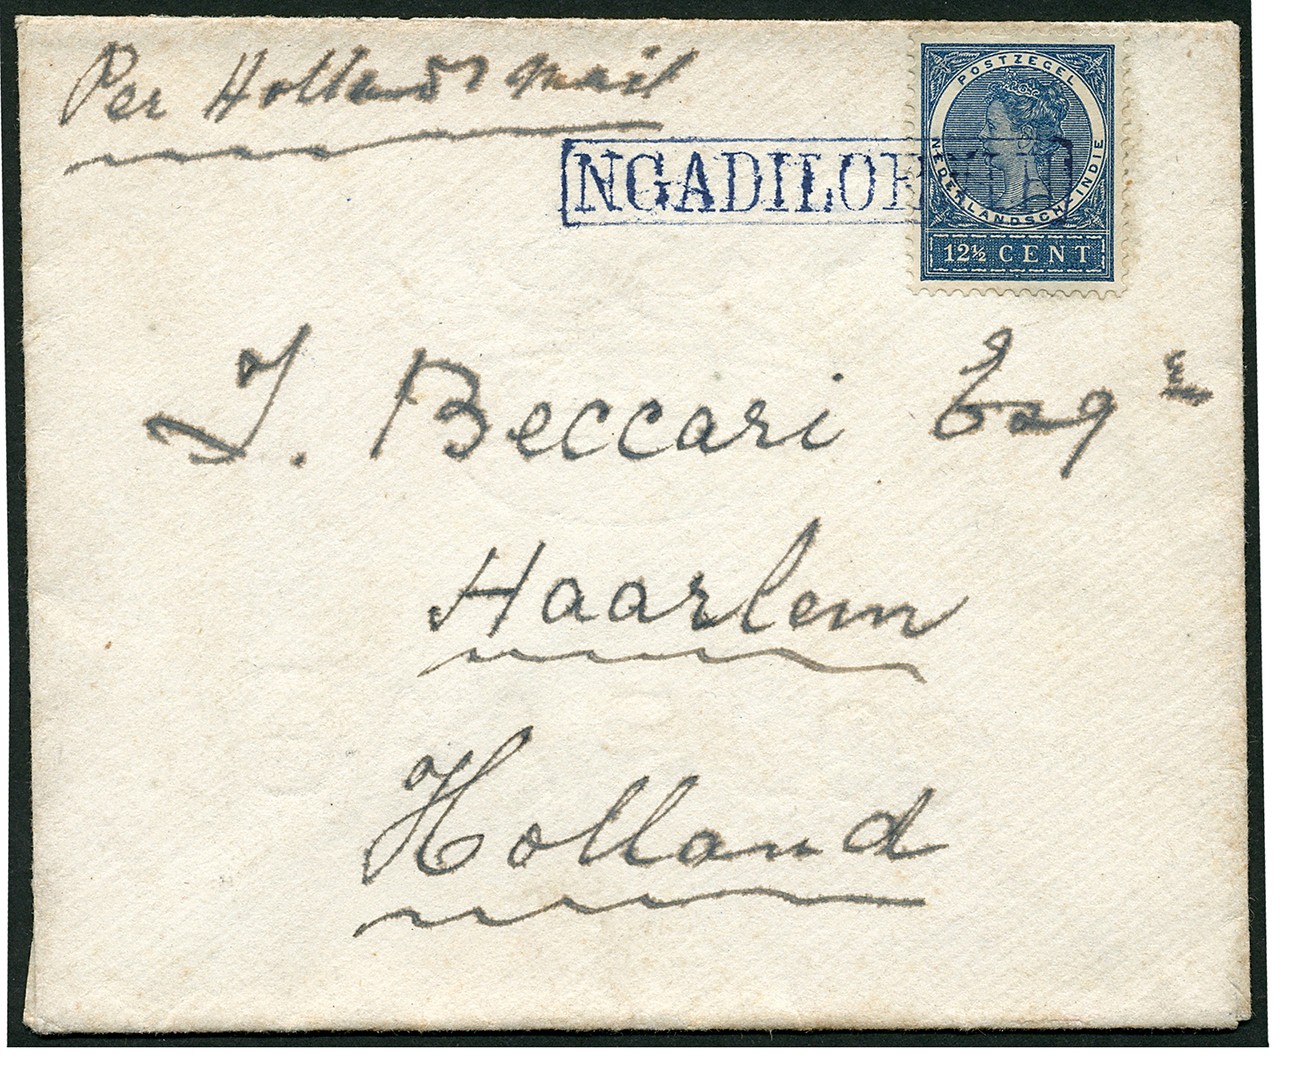 Per Hollands mail
POSTZEGEL
NEDERLANDSCH-INDIE
12½ CENT
J. Beccari Esqre
Haarlem
Holland